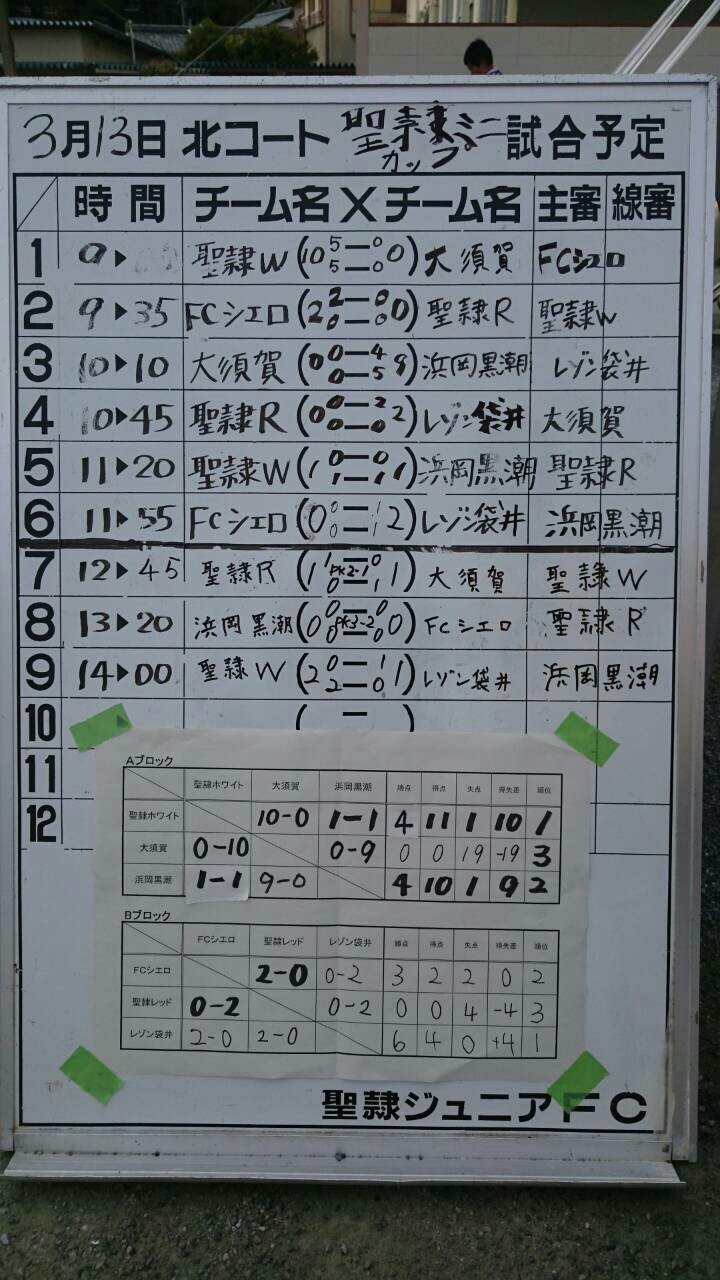 3月13日 北コート 聖隷ミニカップ 試合予定
時間 チーム名 X チーム名 主審 線審
1 9▶ 聖隷W (10 5ー0 5ー0 0) 大須賀 FCシエロ
2 9▶35 FCシエロ (2 2ー0 0ー0 0) 聖隷R 聖隷W
3 10▶10 大須賀 (0 0ー4 0ー5 9) 浜岡黒潮 レゾン袋井
4 10▶45 聖隷R (0 0ー2 0ー0 2) レゾン袋井 大須賀
5 11▶20 聖隷W (1 0ー0 1ー1 1) 浜岡黒潮 聖隷R
6 11▶55 FCシエロ (0 0ー1 0ー1 2) レゾン袋井 浜岡黒潮
7 12▶45 聖隷R (1 1ー0 PK2-1 0ー1 1) 大須賀 聖隷W
8 13▶20 浜岡黒潮 (0 0ー0 PK3-2 0ー0 0) FCシエロ 聖隷R
9 14▶00 聖隷W (2 0ー1 2ー0 1) レゾン袋井 浜岡黒潮
10 ( ー )
11
12
Aブロック
聖隷ホワイト 大須賀 浜岡黒潮 勝点 得点 失点 得失差 順位
聖隷ホワイト 10-0 1-1 4 11 1 10 1
大須賀 0-10 0-9 0 0 19 -19 3
浜岡黒潮 1-1 9-0 4 10 1 9 2
Bブロック
FCシエロ 聖隷レッド レゾン袋井 勝点 得点 失点 得失差 順位
FCシエロ 2-0 0-2 3 2 2 0 2
聖隷レッド 0-2 0-2 0 0 4 -4 3
レゾン袋井 2-0 2-0 6 4 0 +4 1
聖隷ジュニアFC